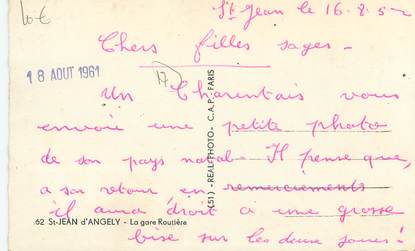 10€
St Jean le 16.8.52
Chers filles sages -
18 AOUT 1961
17
Un Charentais vous
envoie une petite photo
de son pays natal. Il pense que,
a son retour en remerciements
il aura droit a une grosse
bise sur les deux joues!
62 St-JEAN d'ANGELY - La gare Routière
(51) - REAL-PHOTO - C.A.P. PARIS